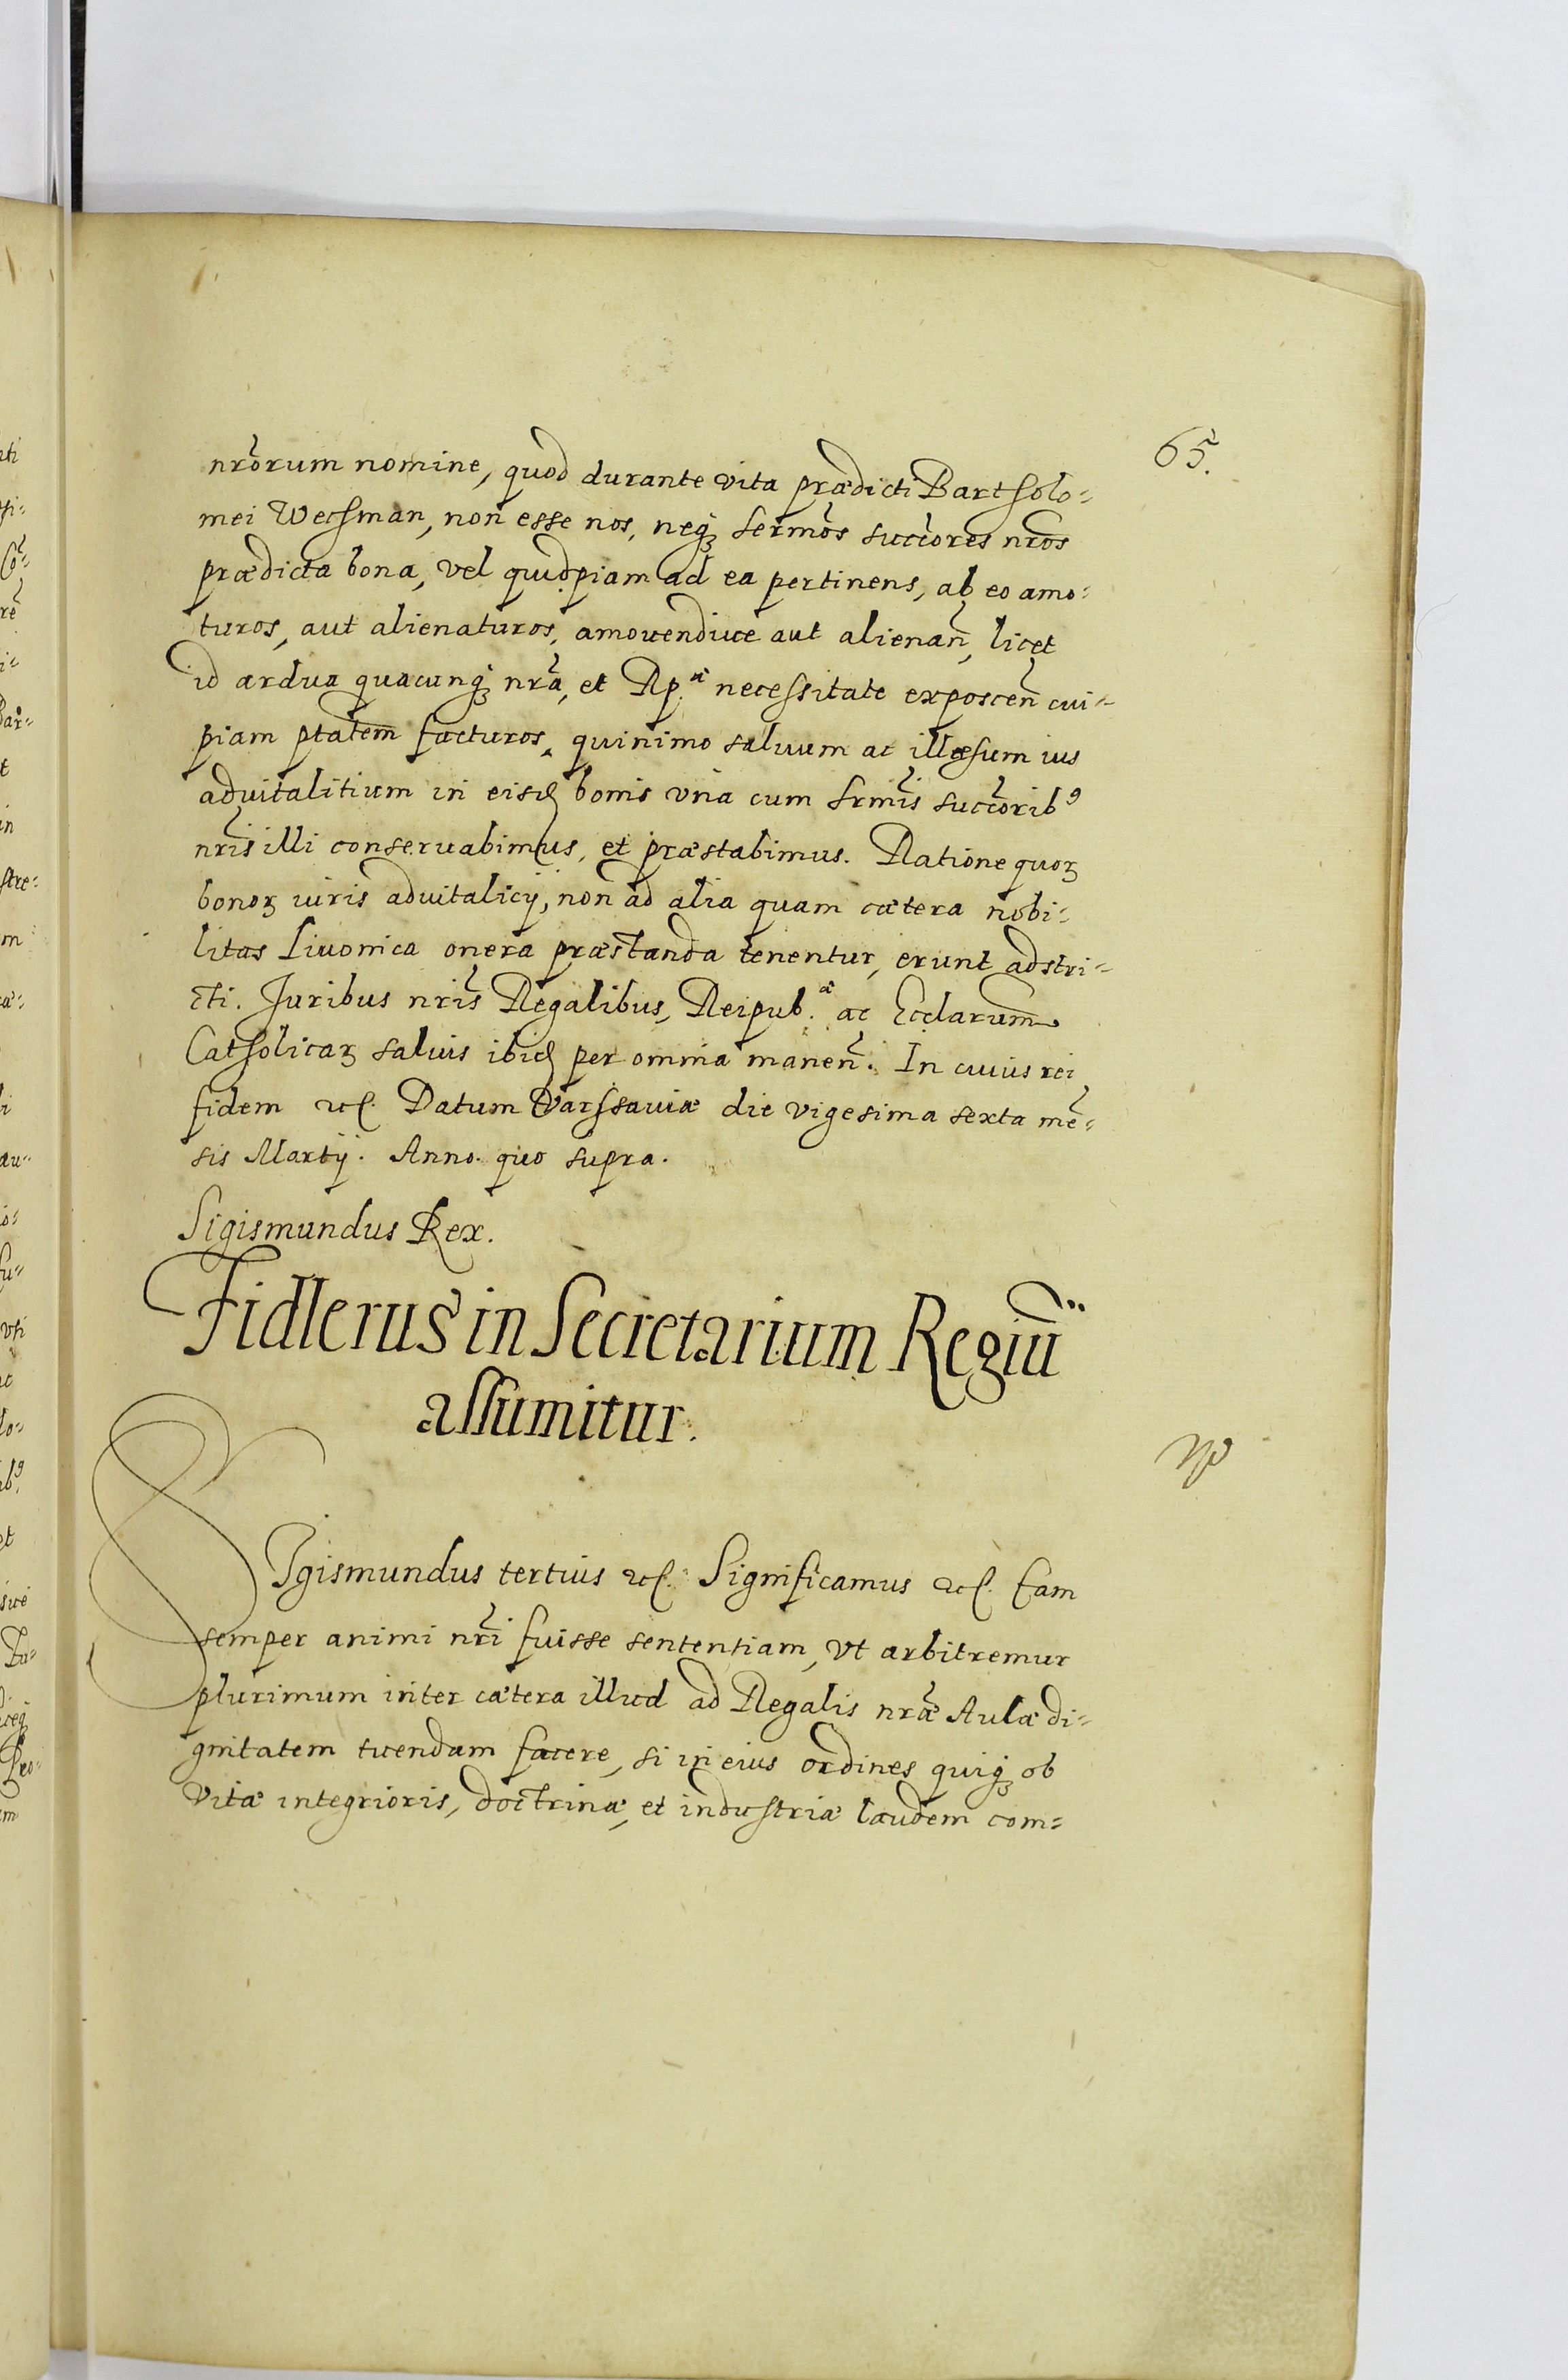 65.
nr̃orum nomine, quod durante vita prædicti Bartholo=
mei Wechman, non esse nos, neq; sermõs succ̃ores nrõs
prædicta bona, vel quidpiam ad ea pertinens, ab eo amo=
turos, aut alienaturos, amouendiue aut alienañ, licet
id ardua quacunq; nrã, et Rp.æ necessitate exposceñ cui=
piam ptatem̃ facturos, quinimo saluum ac illæsum ius
aduitalitium in eisd bonis vna cum srmĩs succ̃orib9
nrĩs illi conseruabimus, et præstabimus. Ratione quoꝝ
bonoꝝ iuris aduitalicij, non ad alia quam cætera nobi=
litas Liuonica onera præstanda tenentur, erunt adstri=
cti. Juribus nrĩs Regalibus, Reipub.æ ac Ecclarum̃
Catholicaꝝ saluis ibid per omnia maneñ. In cuius rei
fidem etc. Datum Varssauiæ die vigesima sexta mẽ=
sis Martij. Anno. quo supra.
Sigismundus Rex.
Fidlerus in Secretarium Regiũ
assumitur.
SIgismundus tertius etc. Significamus etc. Eam
semper animi nrĩ fuisse sententiam, vt arbitremur
plurimum inter cætera illud ad Regalis nræ̃ Aulæ di=
gnitatem tuendam facere, si in eius ordines quiq; ob
vitæ integrioris, doctrinæ, et industriæ laudem com=